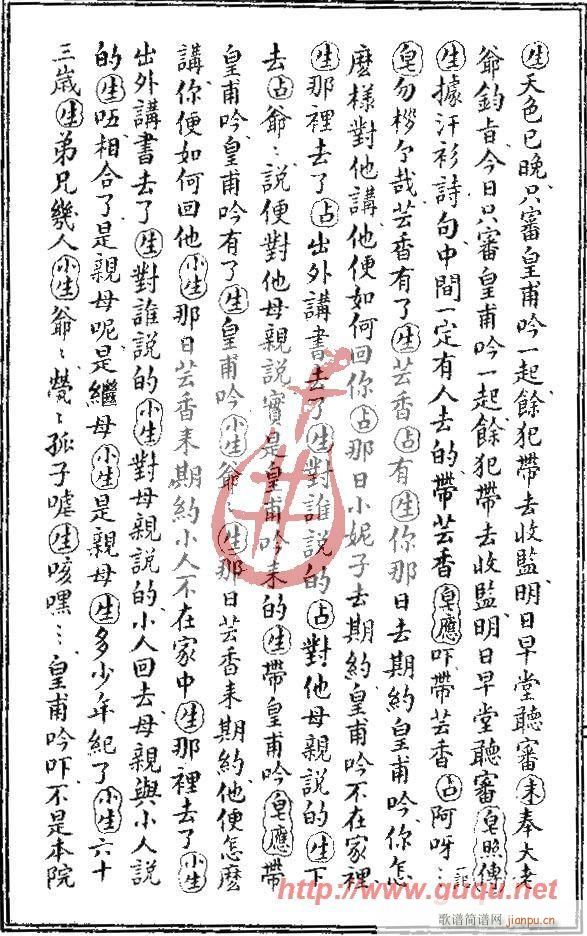 生天色已晚只審皇甫吟一起餘犯帶去收監明日早堂聽審末奉大老
爺鈞旨今日只審皇甫吟一起餘犯帶去收監明日早堂聽審皂照傳
生據汗衫詩句中間一定有人去的帶芸香皂應吓帶芸香占阿呀⋮
皂勿㧯个哉芸香有了生芸香占有生你那日去期約皇甫吟你怎
麽樣對他講他便如何回你占那日小妮子去期約皇甫吟不在家裡
生那裡去了占出外講書去了生對誰說的占對他母親說的生下
去占爺⋮說便對他母親說實是皇甫吟来的生帶皇甫吟皂應帶
皇甫吟皇甫吟有了生皇甫吟小生爺⋮生那日芸香来期約他便怎麽
講你便如何回他小生那日芸香来期約小人不在家中生那裡去了小生
出外講書去了生對誰說的小生對母親說的小人回去母親與小人說
的生呸相合了是親母呢是繼母小生是親母生多少年紀了小生六十
三歲生弟兄幾人小生爺⋮煢⋮孤子嘘生咳嘿⋮皇甫吟吓不是本院
http://www.guqu.net
歌谱简谱网
jianpu.cn